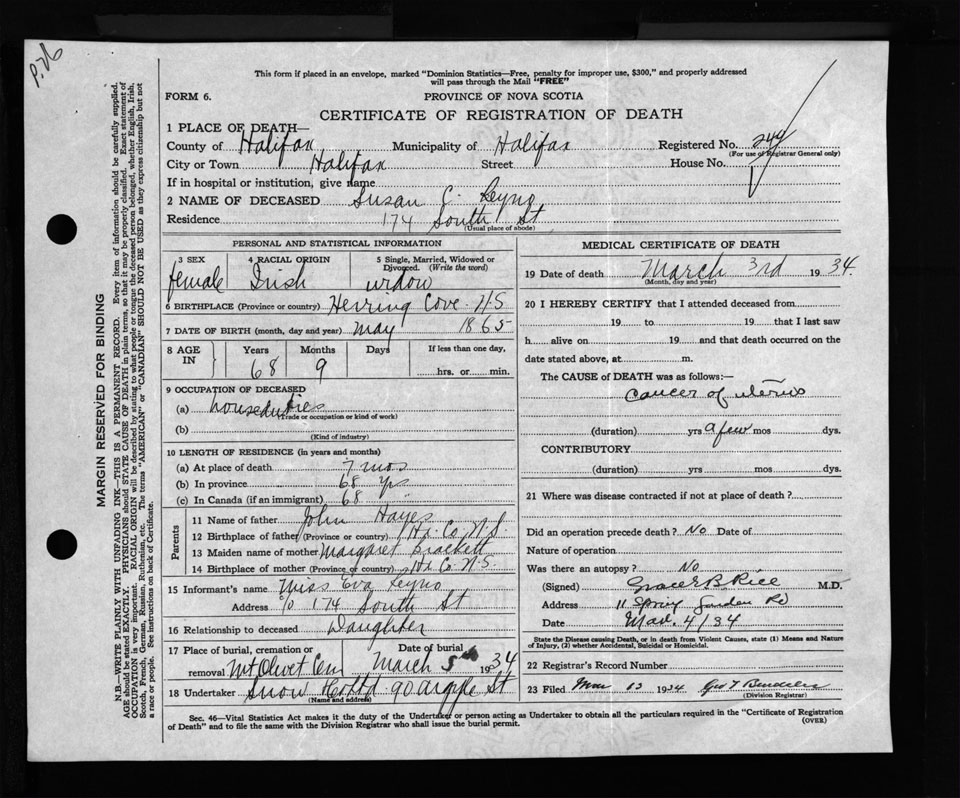 P.26
This form if placed in an envelope, marked "Dominion Statistics—Free, penalty for improper use, $300," and properly addressed
will pass through the Mail "FREE"
FORM 6.
PROVINCE OF NOVA SCOTIA
CERTIFICATE OF REGISTRATION OF DEATH
1 PLACE OF DEATH—
County of Halifax Municipality of Halifax Registered No. 244
(For use of Registrar General only)
City or Town Halifax Street House No.
If in hospital or institution, give name
2 NAME OF DECEASED Susan C. Leyno
Residence 174 South St
(Usual place of abode)
PERSONAL AND STATISTICAL INFORMATION
3 SEX 4 RACIAL ORIGIN 5 Single, Married, Widowed or
Divorced. (Write the word)
female Irish widow
6 BIRTHPLACE (Province or country) Herring Cove N.S
7 DATE OF BIRTH (month, day and year) may 1865
8 AGE IN Years Months Days If less than one day,
68 9 hrs. or min.
9 OCCUPATION OF DECEASED
(a) houseduties
(Trade or occupation or kind of work)
(b)
(Kind of industry)
10 LENGTH OF RESIDENCE (in years and months)
(a) At place of death 7 mos
(b) In province 68 yrs
(c) In Canada (if an immigrant) 68 "
Parents
11 Name of father John Hayes
12 Birthplace of father (Province or country) Hx. Co. N.S.
13 Maiden name of mother Margaret Brackett
14 Birthplace of mother (Province or country) Hx Co. N.S.
15 Informant's name Miss Eva Leyno
Address c/o 174 South St
16 Relationship to deceased Daughter
17 Place of burial, cremation or Date of burial
removal Mt Olivet Cem March 5th 1934
18 Undertaker Snow & Co Ltd 90 Argyle St
(Name and address)
MEDICAL CERTIFICATE OF DEATH
19 Date of death March 3rd 1934.
(Month, day and year)
20 I HEREBY CERTIFY that I attended deceased from
19 to 19 that I last saw
h alive on 19 and that death occurred on the
date stated above, at m.
The CAUSE of DEATH was as follows:—
Cancer of uterus
(duration) yrs a few mos dys.
CONTRIBUTORY
(duration) yrs mos dys.
21 Where was disease contracted if not at place of death?
Did an operation precede death? No Date of
Nature of operation
Was there an autopsy? No
(Signed) Grace B Rice M.D.
Address 11 Spring Garden Rd
Date Mar. 4/34
State the Disease causing Death, or in death from Violent Causes, state (1) Means and Nature
of Injury, (2) whether Accidental, Suicidal or Homicidal.
22 Registrar's Record Number
23 Filed Mar 13 1934 Geo T
(Division Registrar)
Sec. 46—Vital Statistics Act makes it the duty of the Undertaker or person acting as Undertaker to obtain all the particulars required in the "Certificate of Registration
of Death" and to file the same with the Division Registrar who shall issue the burial permit.
(OVER)
MARGIN RESERVED FOR BINDING
N.B.—WRITE PLAINLY WITH UNFADING INK—THIS IS A PERMANENT RECORD. Every item of information should be carefully supplied.
AGE should be stated EXACTLY. PHYSICIANS should STATE CAUSE OF DEATH in plain terms, so that it may be properly classified. Exact statement of
OCCUPATION is very important. RACIAL ORIGIN will be described by stating to what people or tongue the deceased person belonged, whether English, Irish,
Scotch, French, German, Russian, Ruthenian, etc. The terms "AMERICAN" or "CANADIAN" SHOULD NOT BE USED as they express citizenship but not
a race or people. See instructions on back of Certificate.